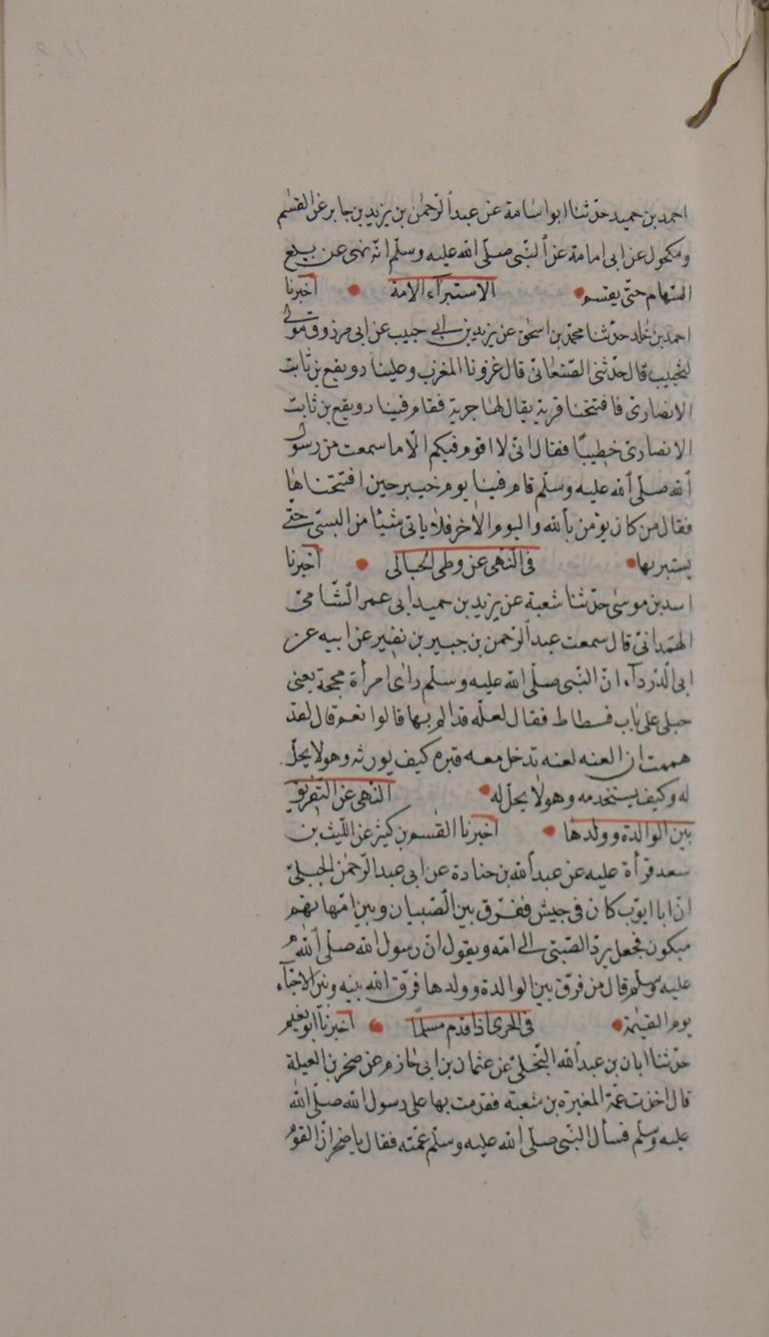 احمد بن حميد حدثنا ابو اسامة عن عبد الرحمن بن يزيد بن جابر عن القسم
ومكحول عن ابى امامة عن النبى صلى الله عليه وسلم انه نهى عن بيع
السهام حتى يقسم • الاستبراء الامة • اخبرنا
احمد بن خالد حدثنا محمد بن اسحق عن يزيد بن ابى حبيب عن ابى مرزوق مولى
لتجيب قال حدثنى الصنعانى قال غزونا المغرب وعلينا رويفع بن ثابت
الانصارى فافتتحنا قرية يقال لها جربة فقام فينا رويفع بن ثابت
الانصارى خطيبا فقال انى لا اقوم فيكم الا ما سمعت من رسول
الله صلى الله عليه وسلم قام فينا يوم خيبر حين افتتحناها
فقال من كان يؤمن بالله واليوم الاخر فلا ياتى شيئا من السبى حتى
يستبريها • فى النهى عن وطى الحبالى • اخبرنا
اسد بن موسى حدثنا شعبة عن يزيد بن حميد ابى عمر الشامى
الهمدانى قال سمعت عبد الرحمن بن جبير بن نفير عن ابيه عن
ابى الدرداء ان النبى صلى الله عليه وسلم راى امرأة مجحة يعنى
حبلى على باب فسطاط فقال لعله قد الم بها قالوا نعم قال لقد
هممت ان العنه لعنة تدخل معه قبره كيف يورثه وهو لا يحل
له وكيف يستخدمه وهو لا يحل له • النهى عن التفريق
بين الوالدة وولدها • اخبرنا القسم بن كثير عن الليث بن
سعد قرأة عليه عن عبد الله بن جنادة عن ابى عبد الرحمن الحبلى
ان ابا ايوب كان فى جيش ففرق بين الصبيان وبين امهاتهم
فجعل يرد الصبى الى امه ويقول ان رسول الله صلى الله
عليه وسلم قال من فرق بين الوالدة وولدها فرق الله بينه وبين الاحباء
يوم القيمة • فى الحربى اذا قدم مسلما • اخبرنا ابو نعيم
حدثنا ابان بن عبد الله البجلى عن عثمان بن ابى حازم عن صخر بن العيلة
قال اخذت عمة المغيرة بن شعبة فقدمت بها على رسول الله صلى الله
عليه وسلم فسأل النبى صلى الله عليه وسلم عمته فقال يا صخر ان القوم